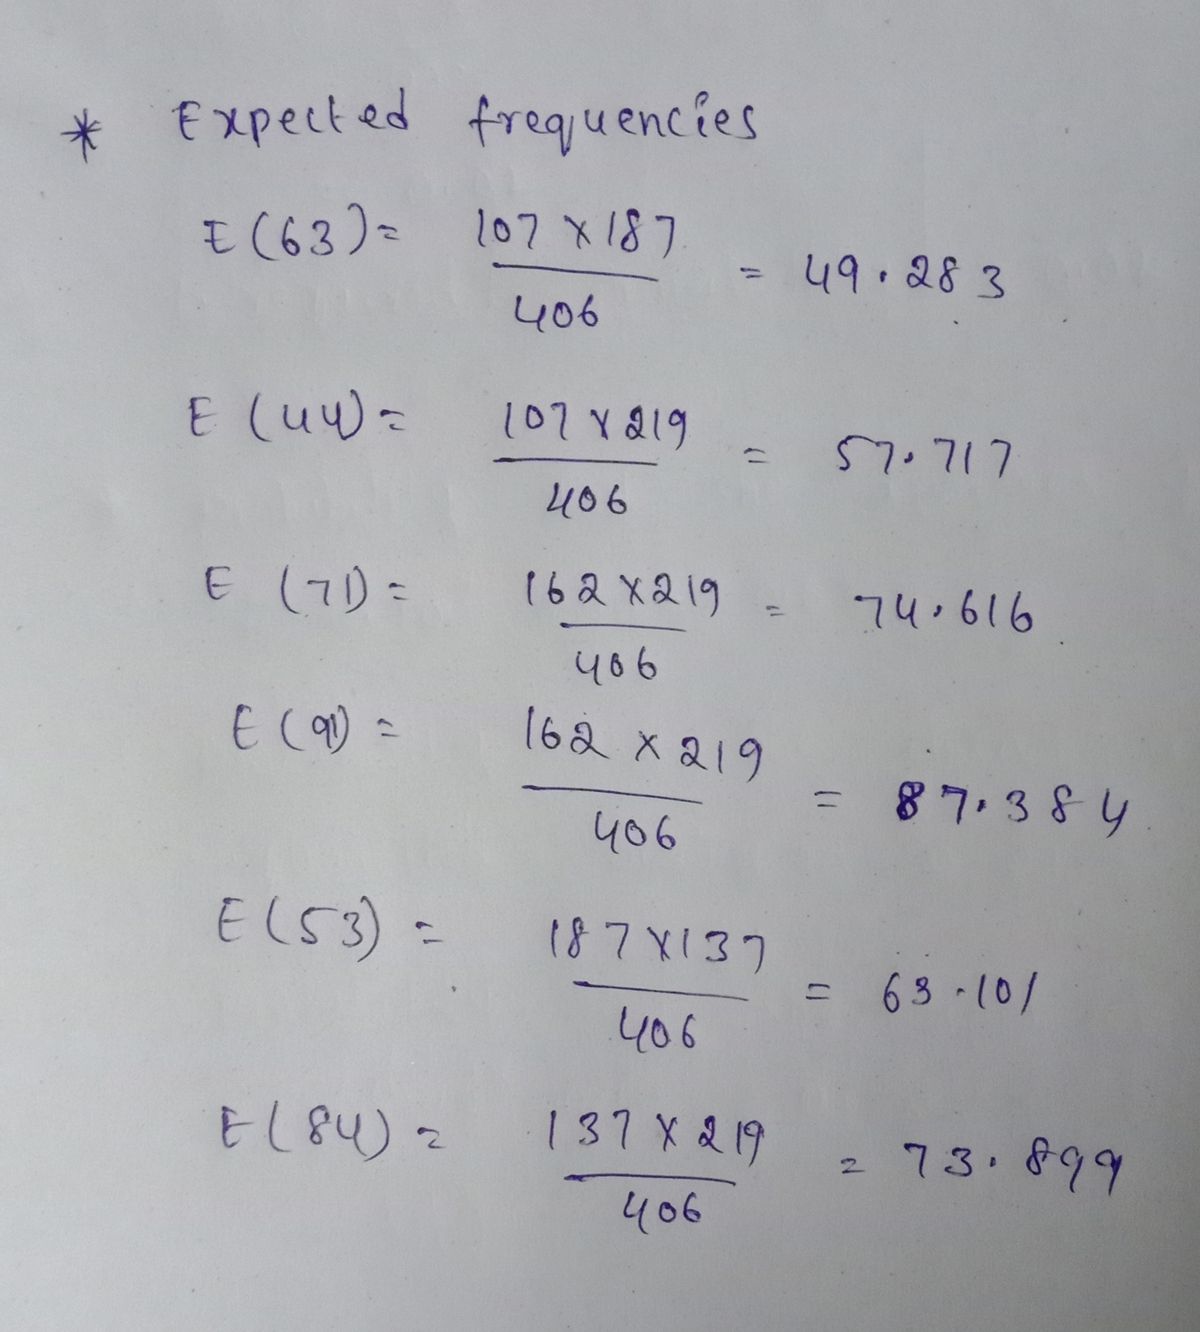 * Expected frequencies
E(63) = 107 × 187 / 406 = 49.283
E(44) = 107 × 219 / 406 = 57.717
E(71) = 162 × 219 / 406 = 74.616
E(91) = 162 × 219 / 406 = 87.384
E(53) = 187 × 137 / 406 = 63.101
E(84) = 137 × 219 / 406 = 73.899